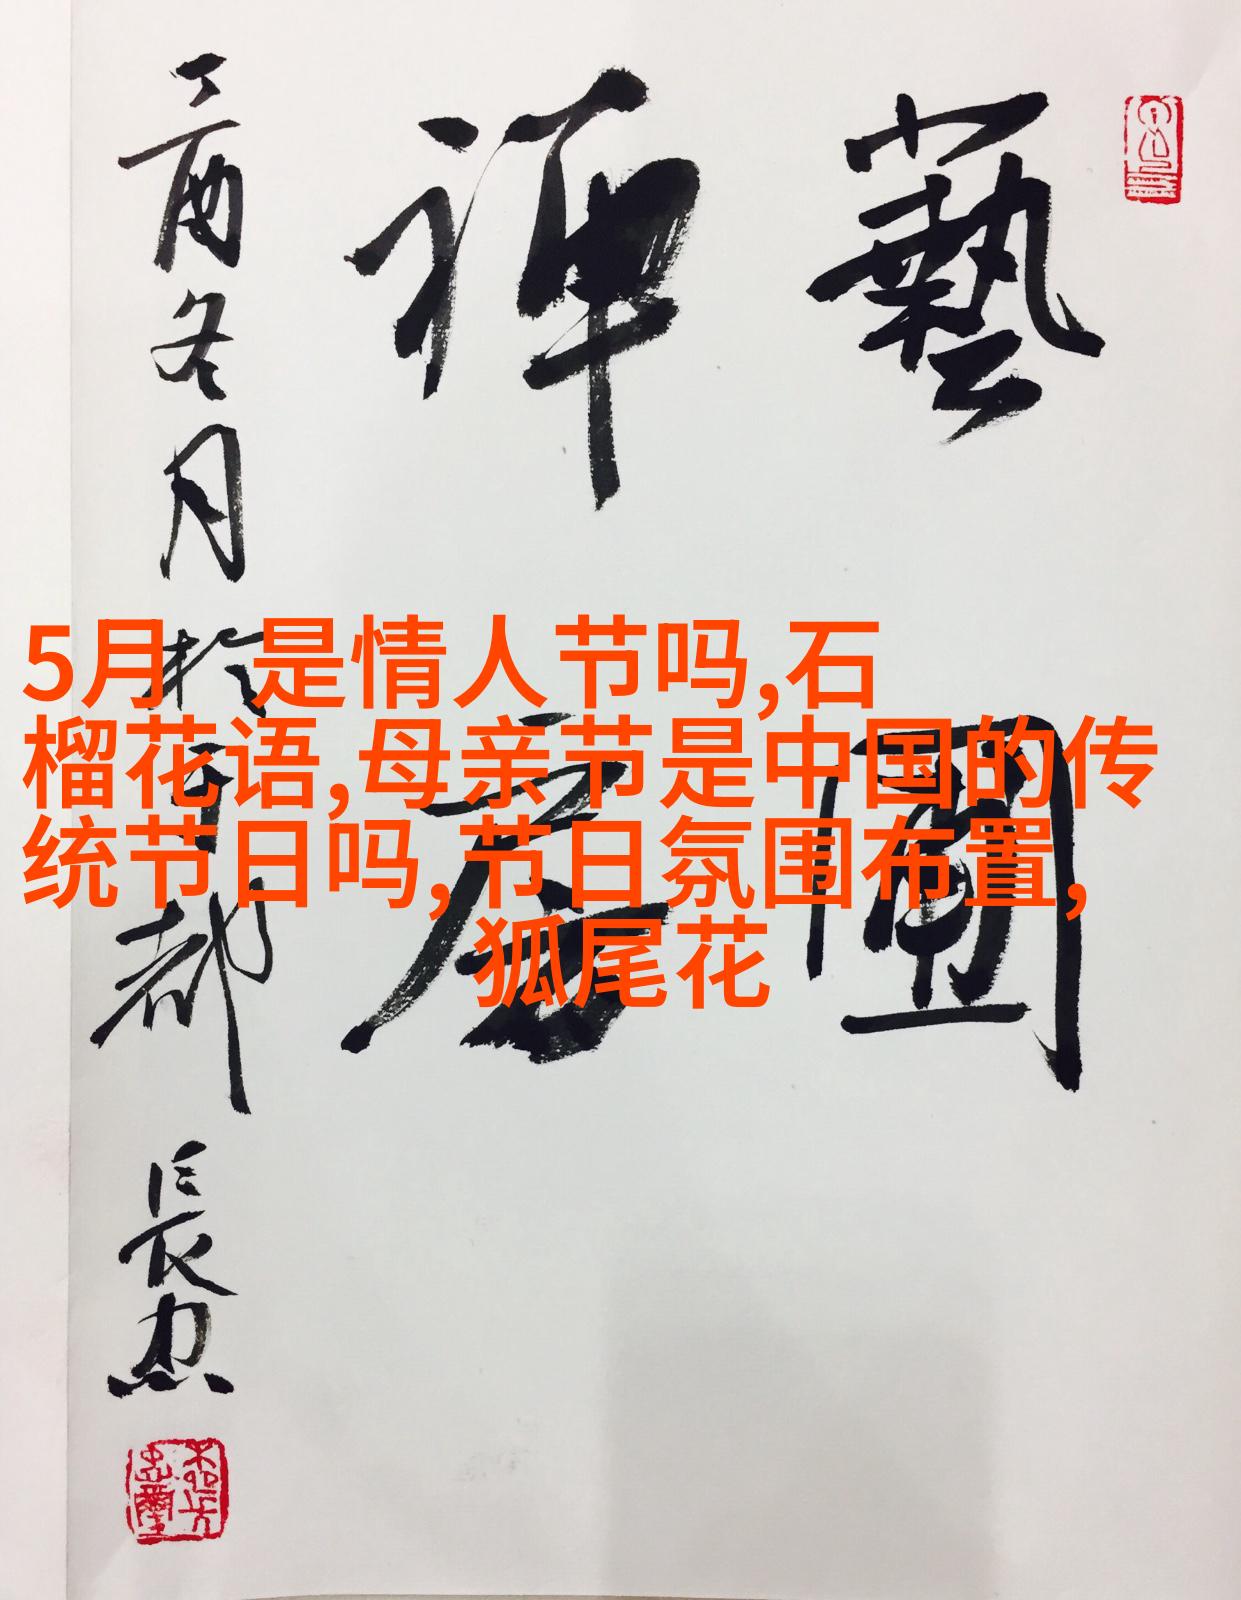 藝圃
禪彦
丁酉冬月於首都
長忠
5月 是情人节吗,石
榴花语,母亲节是中国的传
统节日吗,节日氛围布置,
狐尾花